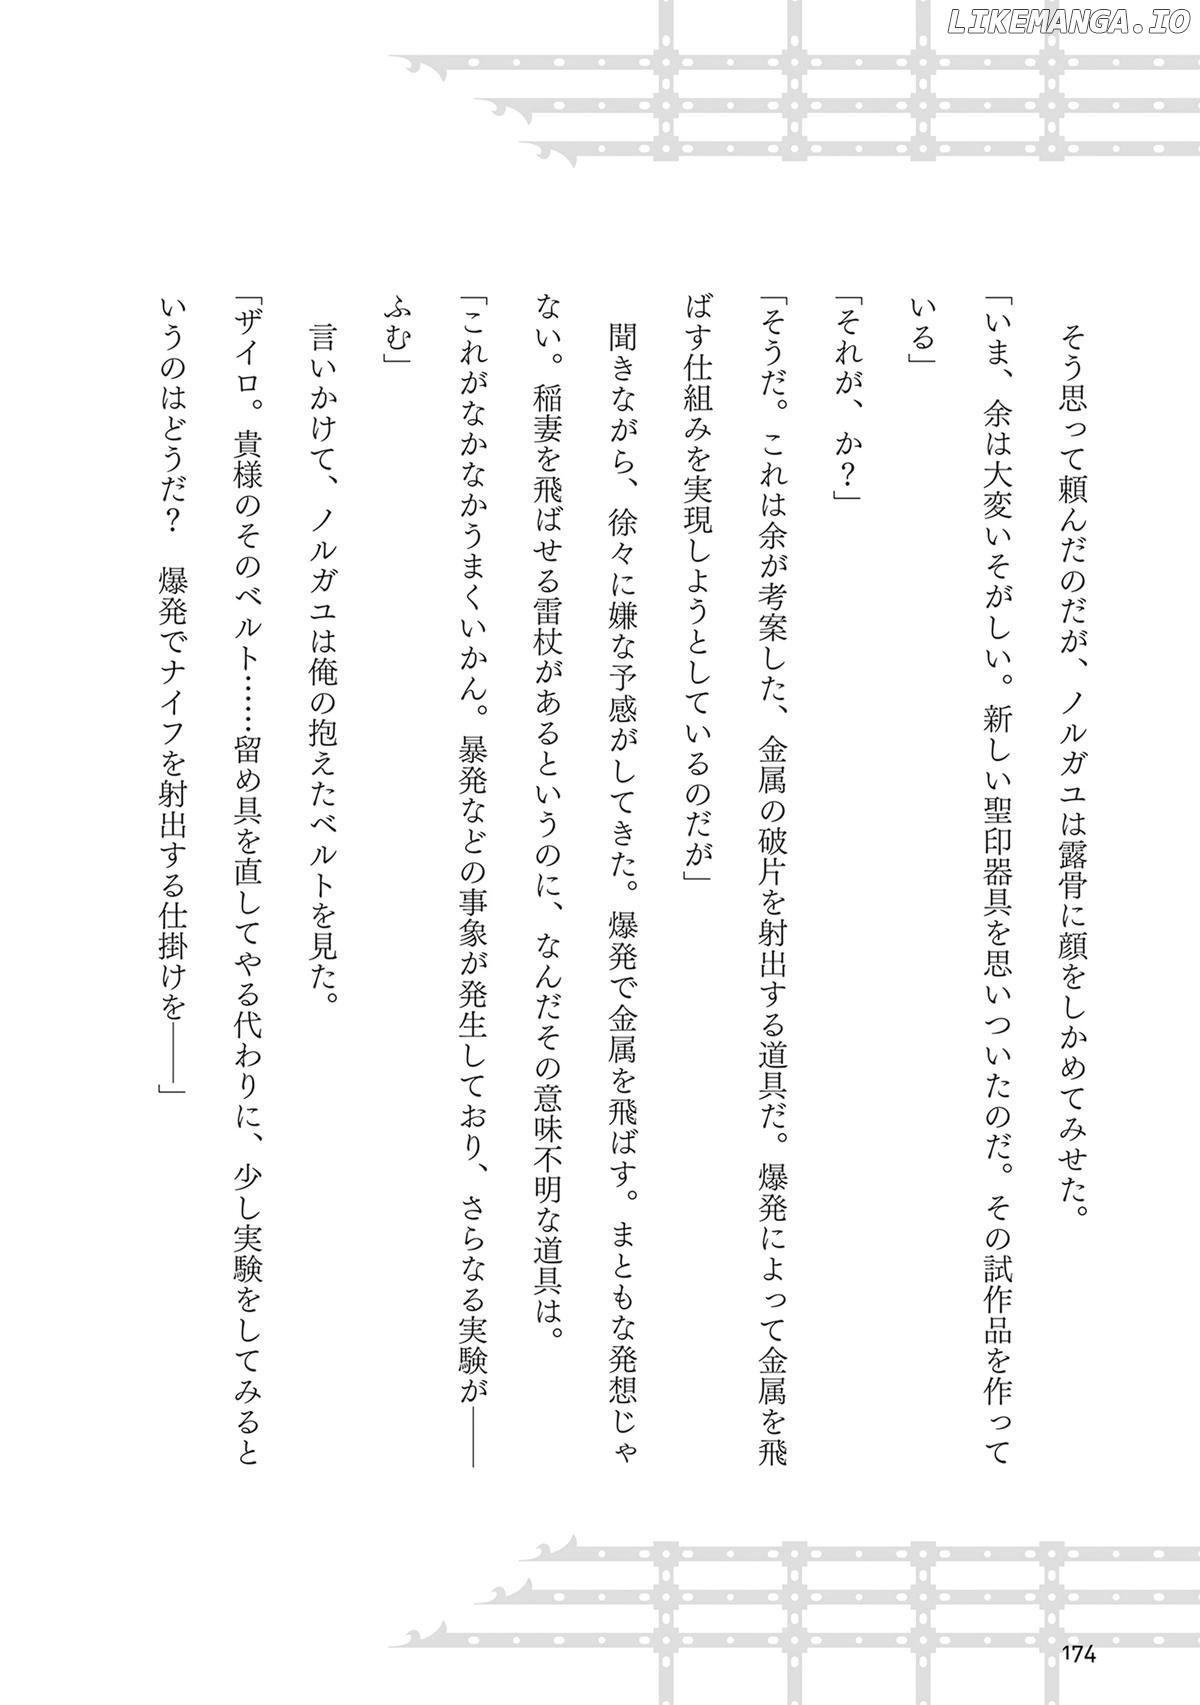 LIKEMANGA.IO
そう思って頼んだのだが、ノルガユは露骨に顔をしかめてみせた。
「いま、余は大変いそがしい。新しい聖印器具を思いついたのだ。その試作品を作って
いる」
「それが、か？」
「そうだ。これは余が考案した、金属の破片を射出する道具だ。爆発によって金属を飛
ばす仕組みを実現しようとしているのだが」
聞きながら、徐々に嫌な予感がしてきた。爆発で金属を飛ばす。まともな発想じゃ
ない。稲妻を飛ばせる雷杖があるというのに、なんだその意味不明な道具は。
「これがなかなかうまくいかん。暴発などの事象が発生しており、さらなる実験が――
ふむ」
言いかけて、ノルガユは俺の抱えたベルトを見た。
「ザイロ。貴様のそのベルト……留め具を直してやる代わりに、少し実験をしてみると
いうのはどうだ？　爆発でナイフを射出する仕掛けを――」
174